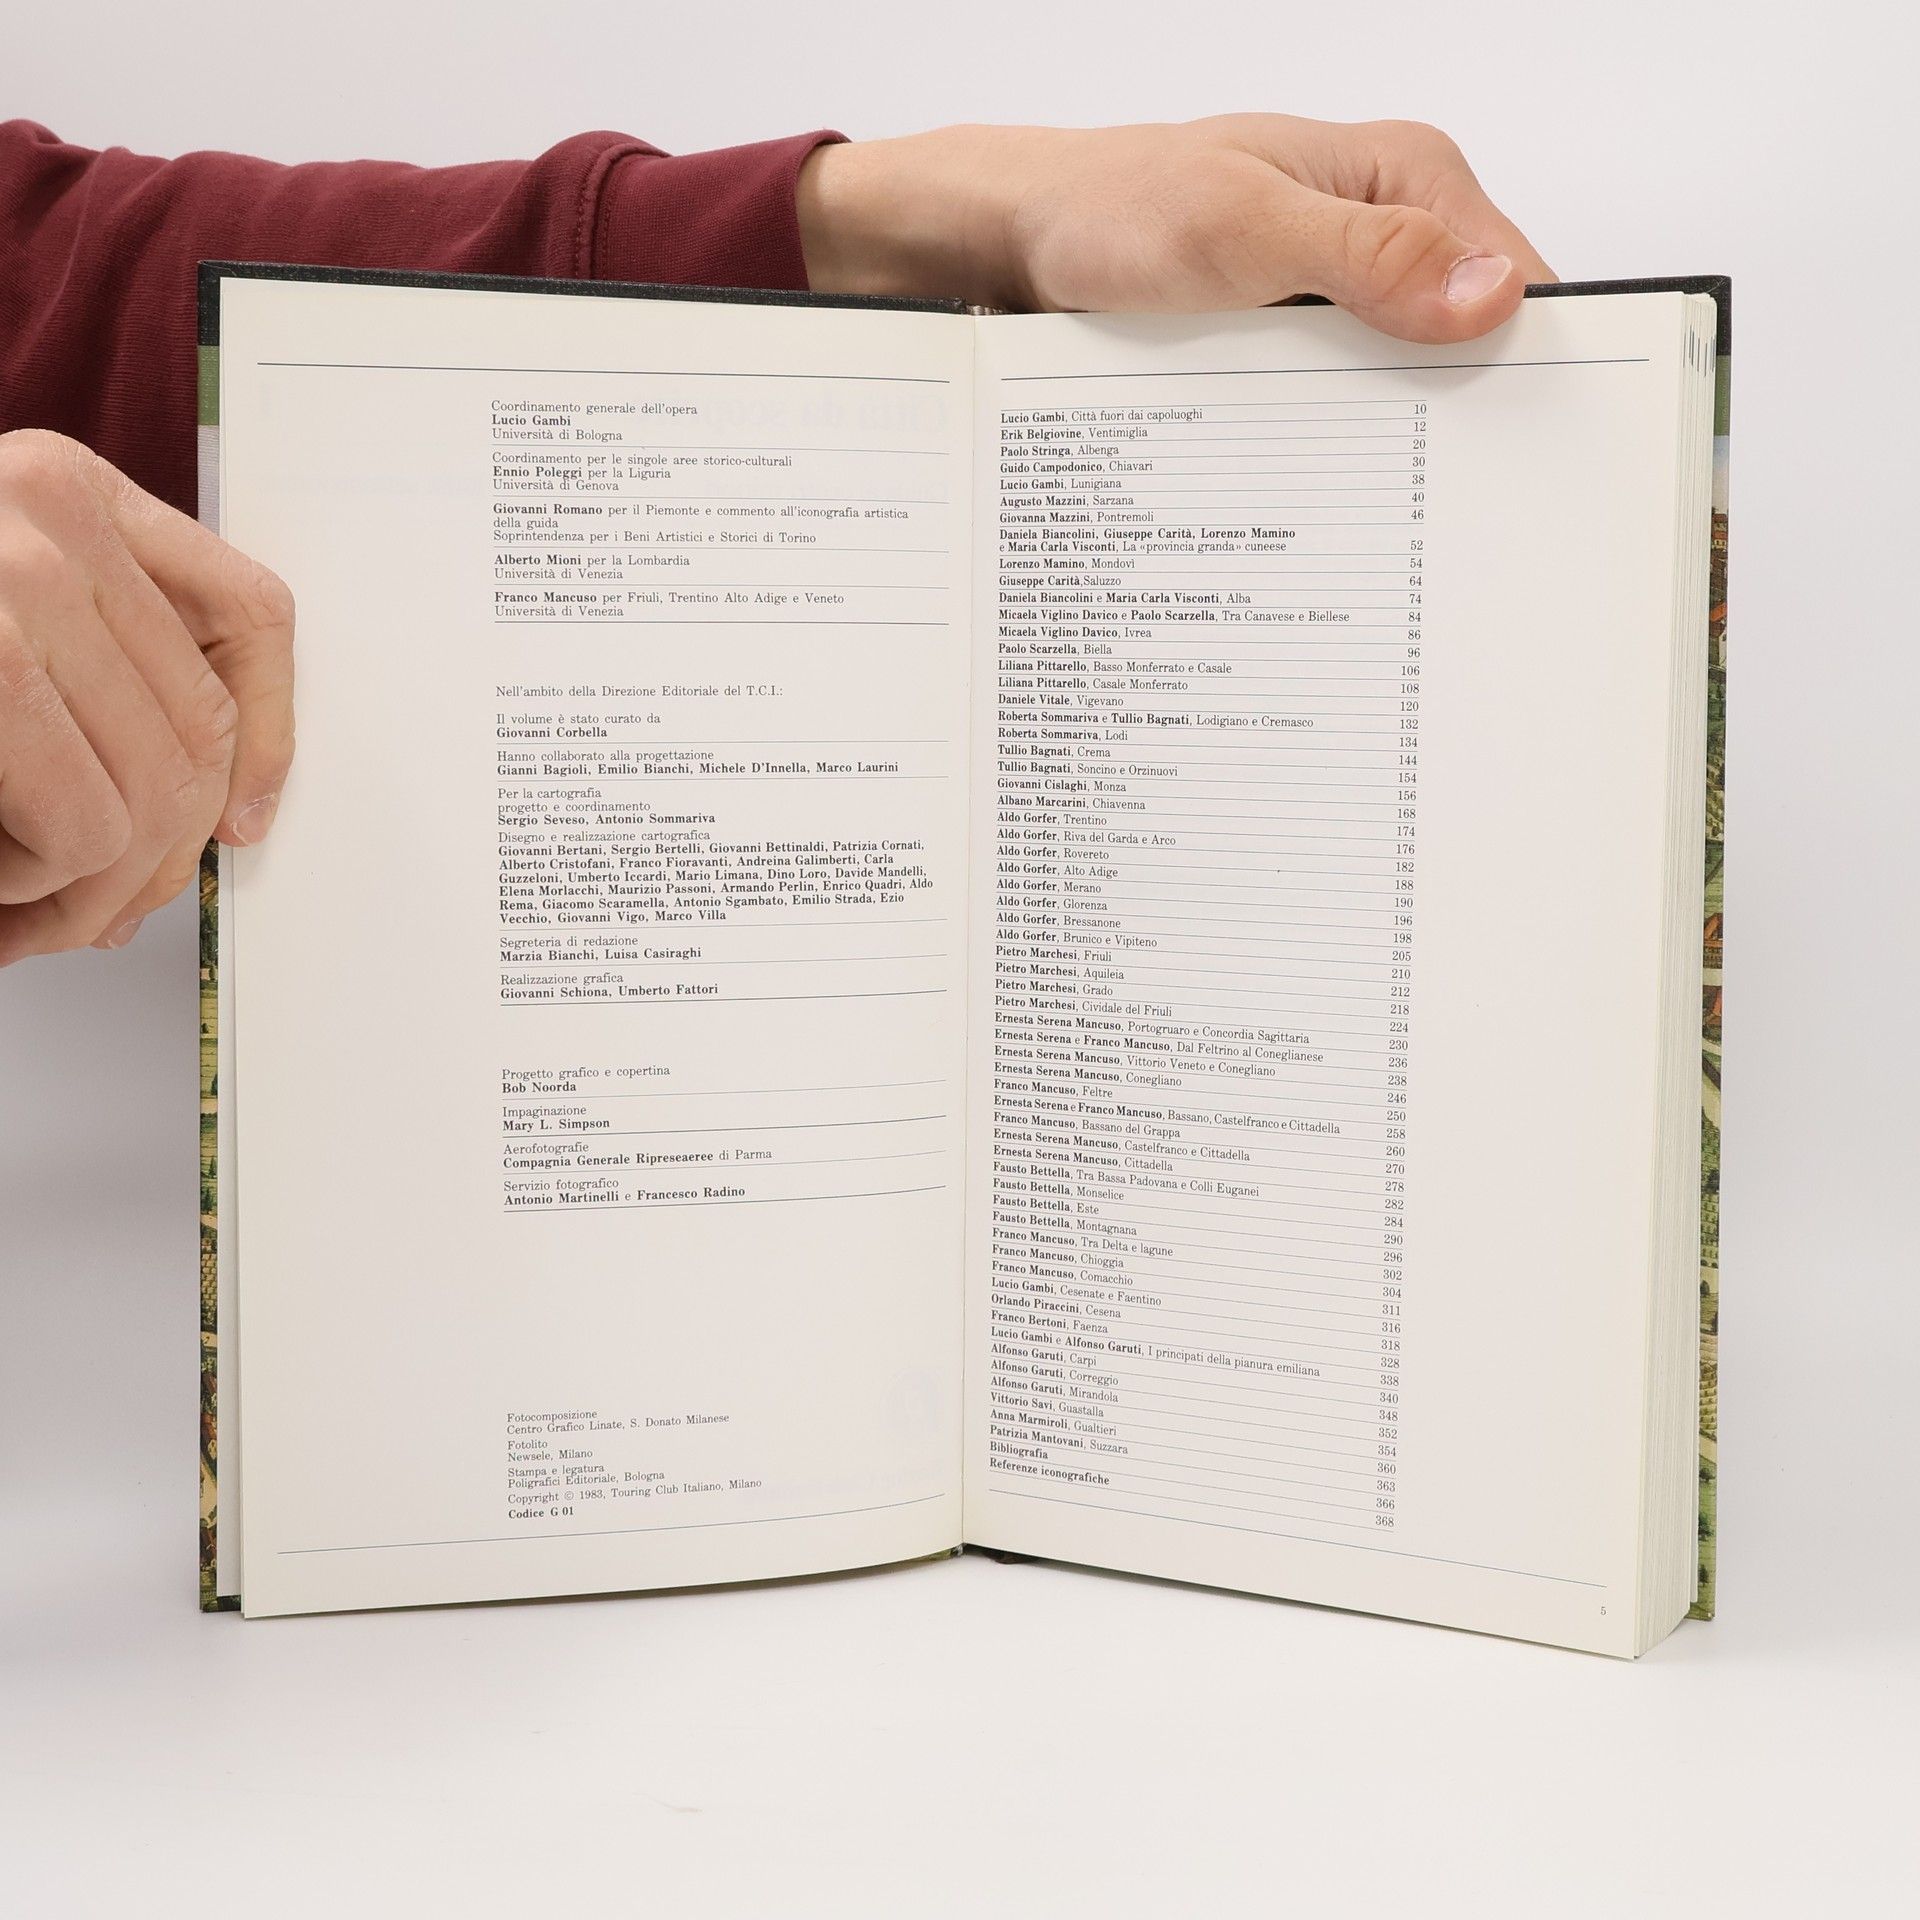 Coordinamento generale dell'opera
Lucio Gambi
Università di Bologna
Coordinamento per le singole aree storico-culturali
Ennio Poleggi per la Liguria
Università di Genova
Giovanni Romano per il Piemonte e commento all'iconografia artistica
della guida
Soprintendenza per i Beni Artistici e Storici di Torino
Alberto Mioni per la Lombardia
Università di Venezia
Franco Mancuso per Friuli, Trentino Alto Adige e Veneto
Università di Venezia
Nell'ambito della Direzione Editoriale del T.C.I.:
Il volume è stato curato da
Giovanni Corbella
Hanno collaborato alla progettazione
Gianni Bagioli, Emilio Bianchi, Michele D'Innella, Marco Laurini
Per la cartografia
progetto e coordinamento
Sergio Seveso, Antonio Sommariva
Disegno e realizzazione cartografica
Giovanni Bertani, Sergio Bertelli, Giovanni Bettinaldi, Patrizia Cornati,
Alberto Cristofani, Franco Fioravanti, Andreina Galimberti, Carla
Guzzeloni, Umberto Iccardi, Mario Limana, Dino Loro, Davide Mandelli,
Elena Morlacchi, Maurizio Passoni, Armando Perlin, Enrico Quadri, Aldo
Rema, Giacomo Scaramella, Antonio Sgambato, Emilio Strada, Ezio
Vecchio, Giovanni Vigo, Marco Villa
Segreteria di redazione
Marzia Bianchi, Luisa Casiraghi
Realizzazione grafica
Giovanni Schiona, Umberto Fattori
Progetto grafico e copertina
Bob Noorda
Impaginazione
Mary L. Simpson
Aerofotografie
Compagnia Generale Ripreseaeree di Parma
Servizio fotografico
Antonio Martinelli e Francesco Radino
Fotocomposizione
Centro Grafico Linate, S. Donato Milanese
Fotolito
Newsele, Milano
Stampa e legatura
Poligrafici Editoriale, Bologna
Copyright © 1983, Touring Club Italiano, Milano
Codice G 01
Lucio Gambi, Città fuori dai capoluoghi 10
Erik Belgiovine, Ventimiglia 12
Paolo Stringa, Albenga 20
Guido Campodonico, Chiavari 30
Lucio Gambi, Lunigiana 38
Augusto Mazzini, Sarzana 40
Giovanna Mazzini, Pontremoli 46
Daniela Biancolini, Giuseppe Carità, Lorenzo Mamino
e Maria Carla Visconti, La «provincia granda» cuneese 52
Lorenzo Mamino, Mondovì 54
Giuseppe Carità,Saluzzo 64
Daniela Biancolini e Maria Carla Visconti, Alba 74
Micaela Viglino Davico e Paolo Scarzella, Tra Canavese e Biellese 84
Micaela Viglino Davico, Ivrea 86
Paolo Scarzella, Biella 96
Liliana Pittarello, Basso Monferrato e Casale 106
Liliana Pittarello, Casale Monferrato 108
Daniele Vitale, Vigevano 120
Roberta Sommariva e Tullio Bagnati, Lodigiano e Cremasco 132
Roberta Sommariva, Lodi 134
Tullio Bagnati, Crema 144
Tullio Bagnati, Soncino e Orzinuovi 154
Giovanni Cislaghi, Monza 156
Albano Marcarini, Chiavenna 168
Aldo Gorfer, Trentino 174
Aldo Gorfer, Riva del Garda e Arco 176
Aldo Gorfer, Rovereto 182
Aldo Gorfer, Alto Adige 188
Aldo Gorfer, Merano 190
Aldo Gorfer, Glorenza 196
Aldo Gorfer, Bressanone 198
Aldo Gorfer, Brunico e Vipiteno 205
Pietro Marchesi, Friuli 210
Pietro Marchesi, Aquileia 212
Pietro Marchesi, Grado 218
Pietro Marchesi, Cividale del Friuli 224
Ernesta Serena Mancuso, Portogruaro e Concordia Sagittaria 230
Ernesta Serena e Franco Mancuso, Dal Feltrino al Coneglianese 236
Ernesta Serena Mancuso, Vittorio Veneto e Conegliano 238
Ernesta Serena Mancuso, Conegliano 246
Franco Mancuso, Feltre 250
Ernesta Serena e Franco Mancuso, Bassano, Castelfranco e Cittadella 258
Franco Mancuso, Bassano del Grappa 260
Ernesta Serena Mancuso, Castelfranco e Cittadella 270
Ernesta Serena Mancuso, Cittadella 278
Fausto Bettella, Tra Bassa Padovana e Colli Euganei 282
Fausto Bettella, Monselice 284
Fausto Bettella, Este 290
Fausto Bettella, Montagnana 296
Franco Mancuso, Tra Delta e lagune 302
Franco Mancuso, Chioggia 304
Franco Mancuso, Comacchio 311
Lucio Gambi, Cesenate e Faentino 316
Orlando Piraccini, Cesena 318
Franco Bertoni, Faenza 328
Lucio Gambi e Alfonso Garuti, I principati della pianura emiliana 338
Alfonso Garuti, Carpi 340
Alfonso Garuti, Correggio 348
Alfonso Garuti, Mirandola 352
Vittorio Savi, Guastalla 354
Anna Marmiroli, Gualtieri 360
Patrizia Mantovani, Suzzara 363
Bibliografia 366
Referenze iconografiche 368
5